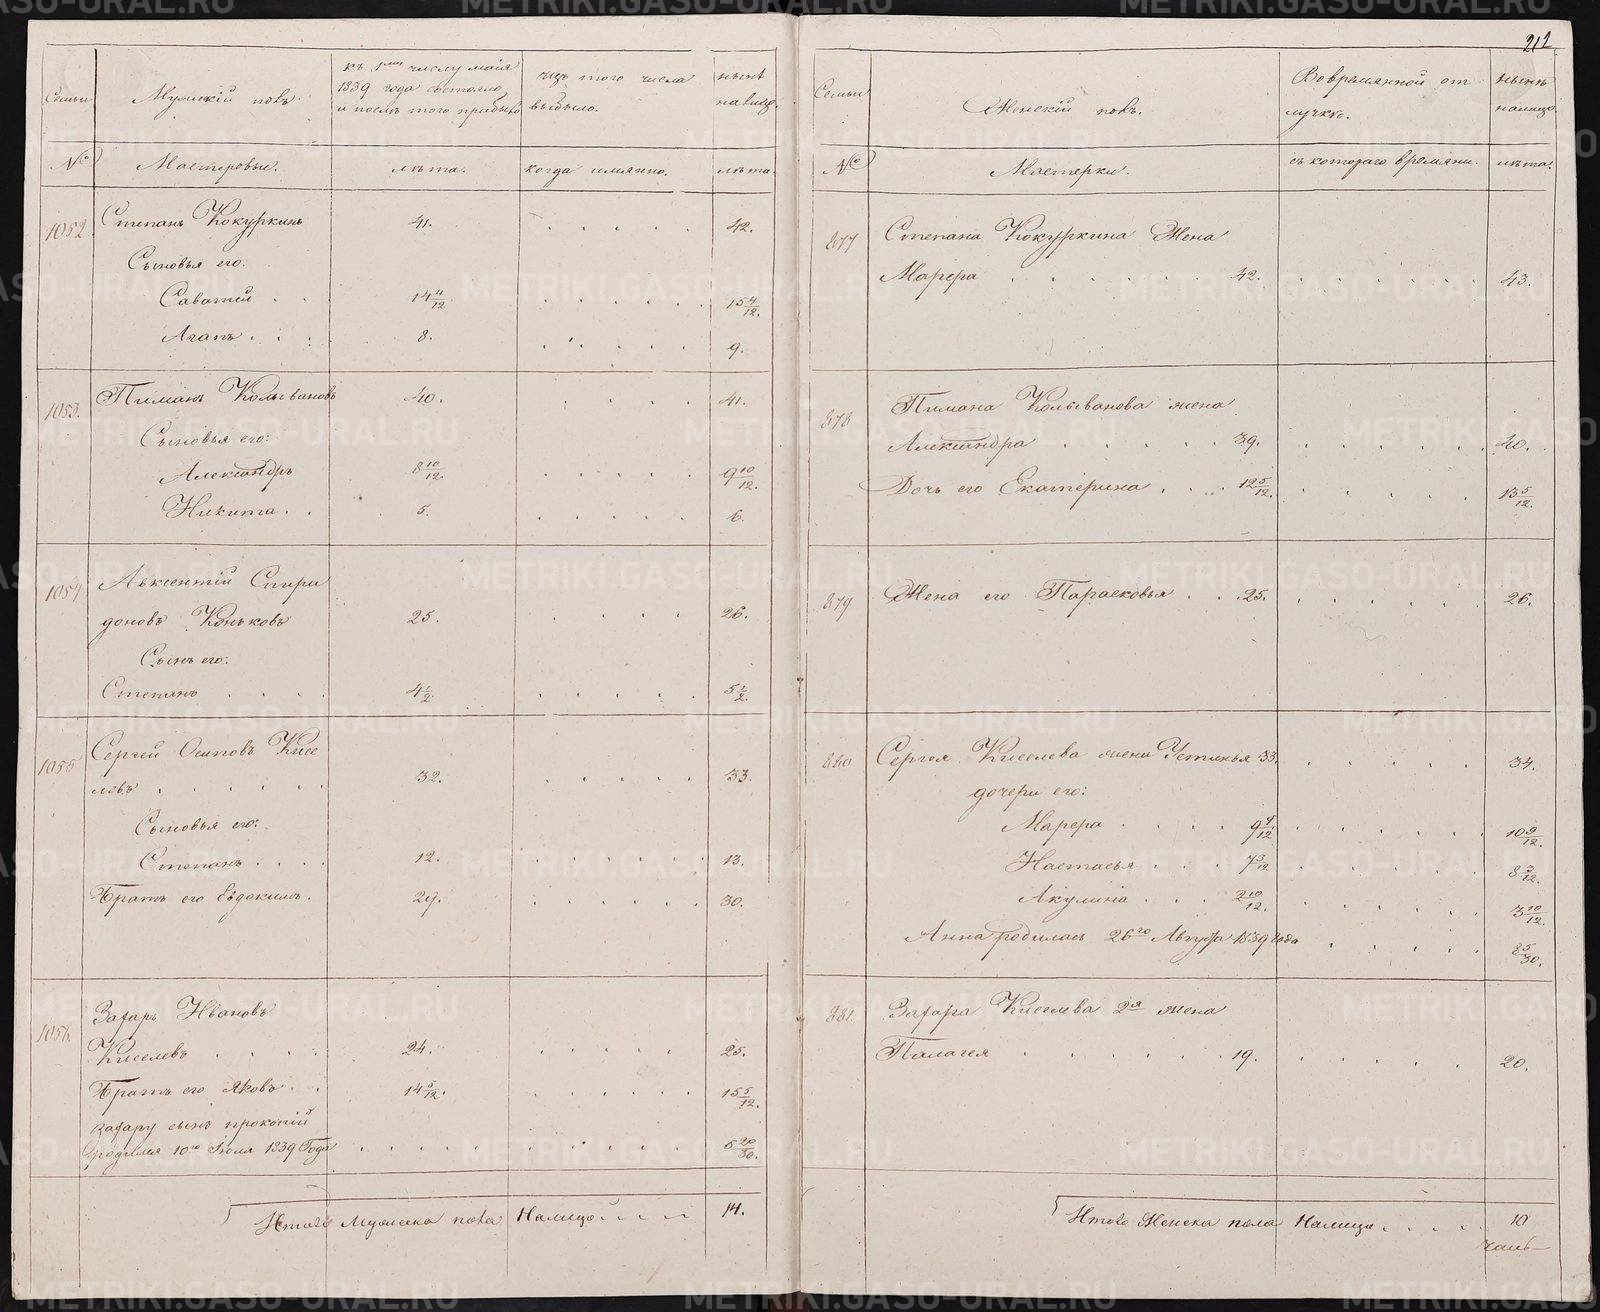 212
Семьи
Мужскій полъ.
къ 1му числу маія
1839 года состояло
и послѣ того прибыло
изъ того числа
выбыло.
нынѣ
налицо.
№
Мастеровые.
лѣта.
когда имянно.
лѣта.
1052
Степанъ Кокуркинъ
41.
42.
Сыновья его:
Саватѣй
14 4/12.
15 4/12.
Агапъ
8.
9.
1053.
Пиманъ Колывановъ
40.
41.
Сыновья его:
Александръ
8 10/12.
9 10/12.
Никита
5.
6.
1054
Авксентій Спири
доновъ Коньковъ
25.
26.
Сынъ его:
Степанъ
4 1/2.
5 1/2.
1055
Сергей Осиповъ Кисе
левъ
32.
33.
Сыновья его:
Степанъ
12.
13.
Братъ его Евдокимъ.
29.
30.
1056.
Захаръ Ивановъ
Киселевъ
24.
25.
Братъ его Яковъ
14 5/12.
15 5/12.
захару сынъ прокопій
родился 10го Іюля 1839 Года
6 20/30.
Итого Мужеска пола Налицо
14.
Семьи
Женскій полъ.
Вовремянной от
лучкѣ.
нынѣ
налицо.
№
Мастерки.
съ котораго времяни.
лѣта.
877
Степана Кокуркина Жена
Марѳра
42.
43.
878
Пимана Колыванова жена
Александра
39.
40.
Дочь его Екатерина
12 5/12.
13 5/12.
879
Жена его Парасковья
25.
26.
880
Сергея Киселева жена Устинья 33.
34.
дочери его:
Марѳра
9 9/12
10 9/12.
Настасья
7 3/12
8 3/12.
Акулина
2 10/12.
3 10/12.
Анна родилась 26го Августа 1839 года
8 5/30.
881.
Захара Киселева 2я жена
Палагея
19.
20.
Итого Женска пола Налицо
10
METRIKI.GASO-URAL.RU